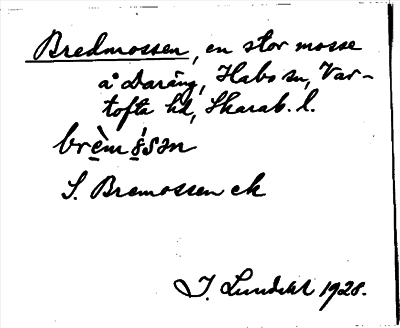 Bredmossen, en stor mosse
å Daräng, Habo sn, Var-
tofta hd, Skarab. l.
brèm ósən
S. Bremossen ek
J. Lundahl 1928.